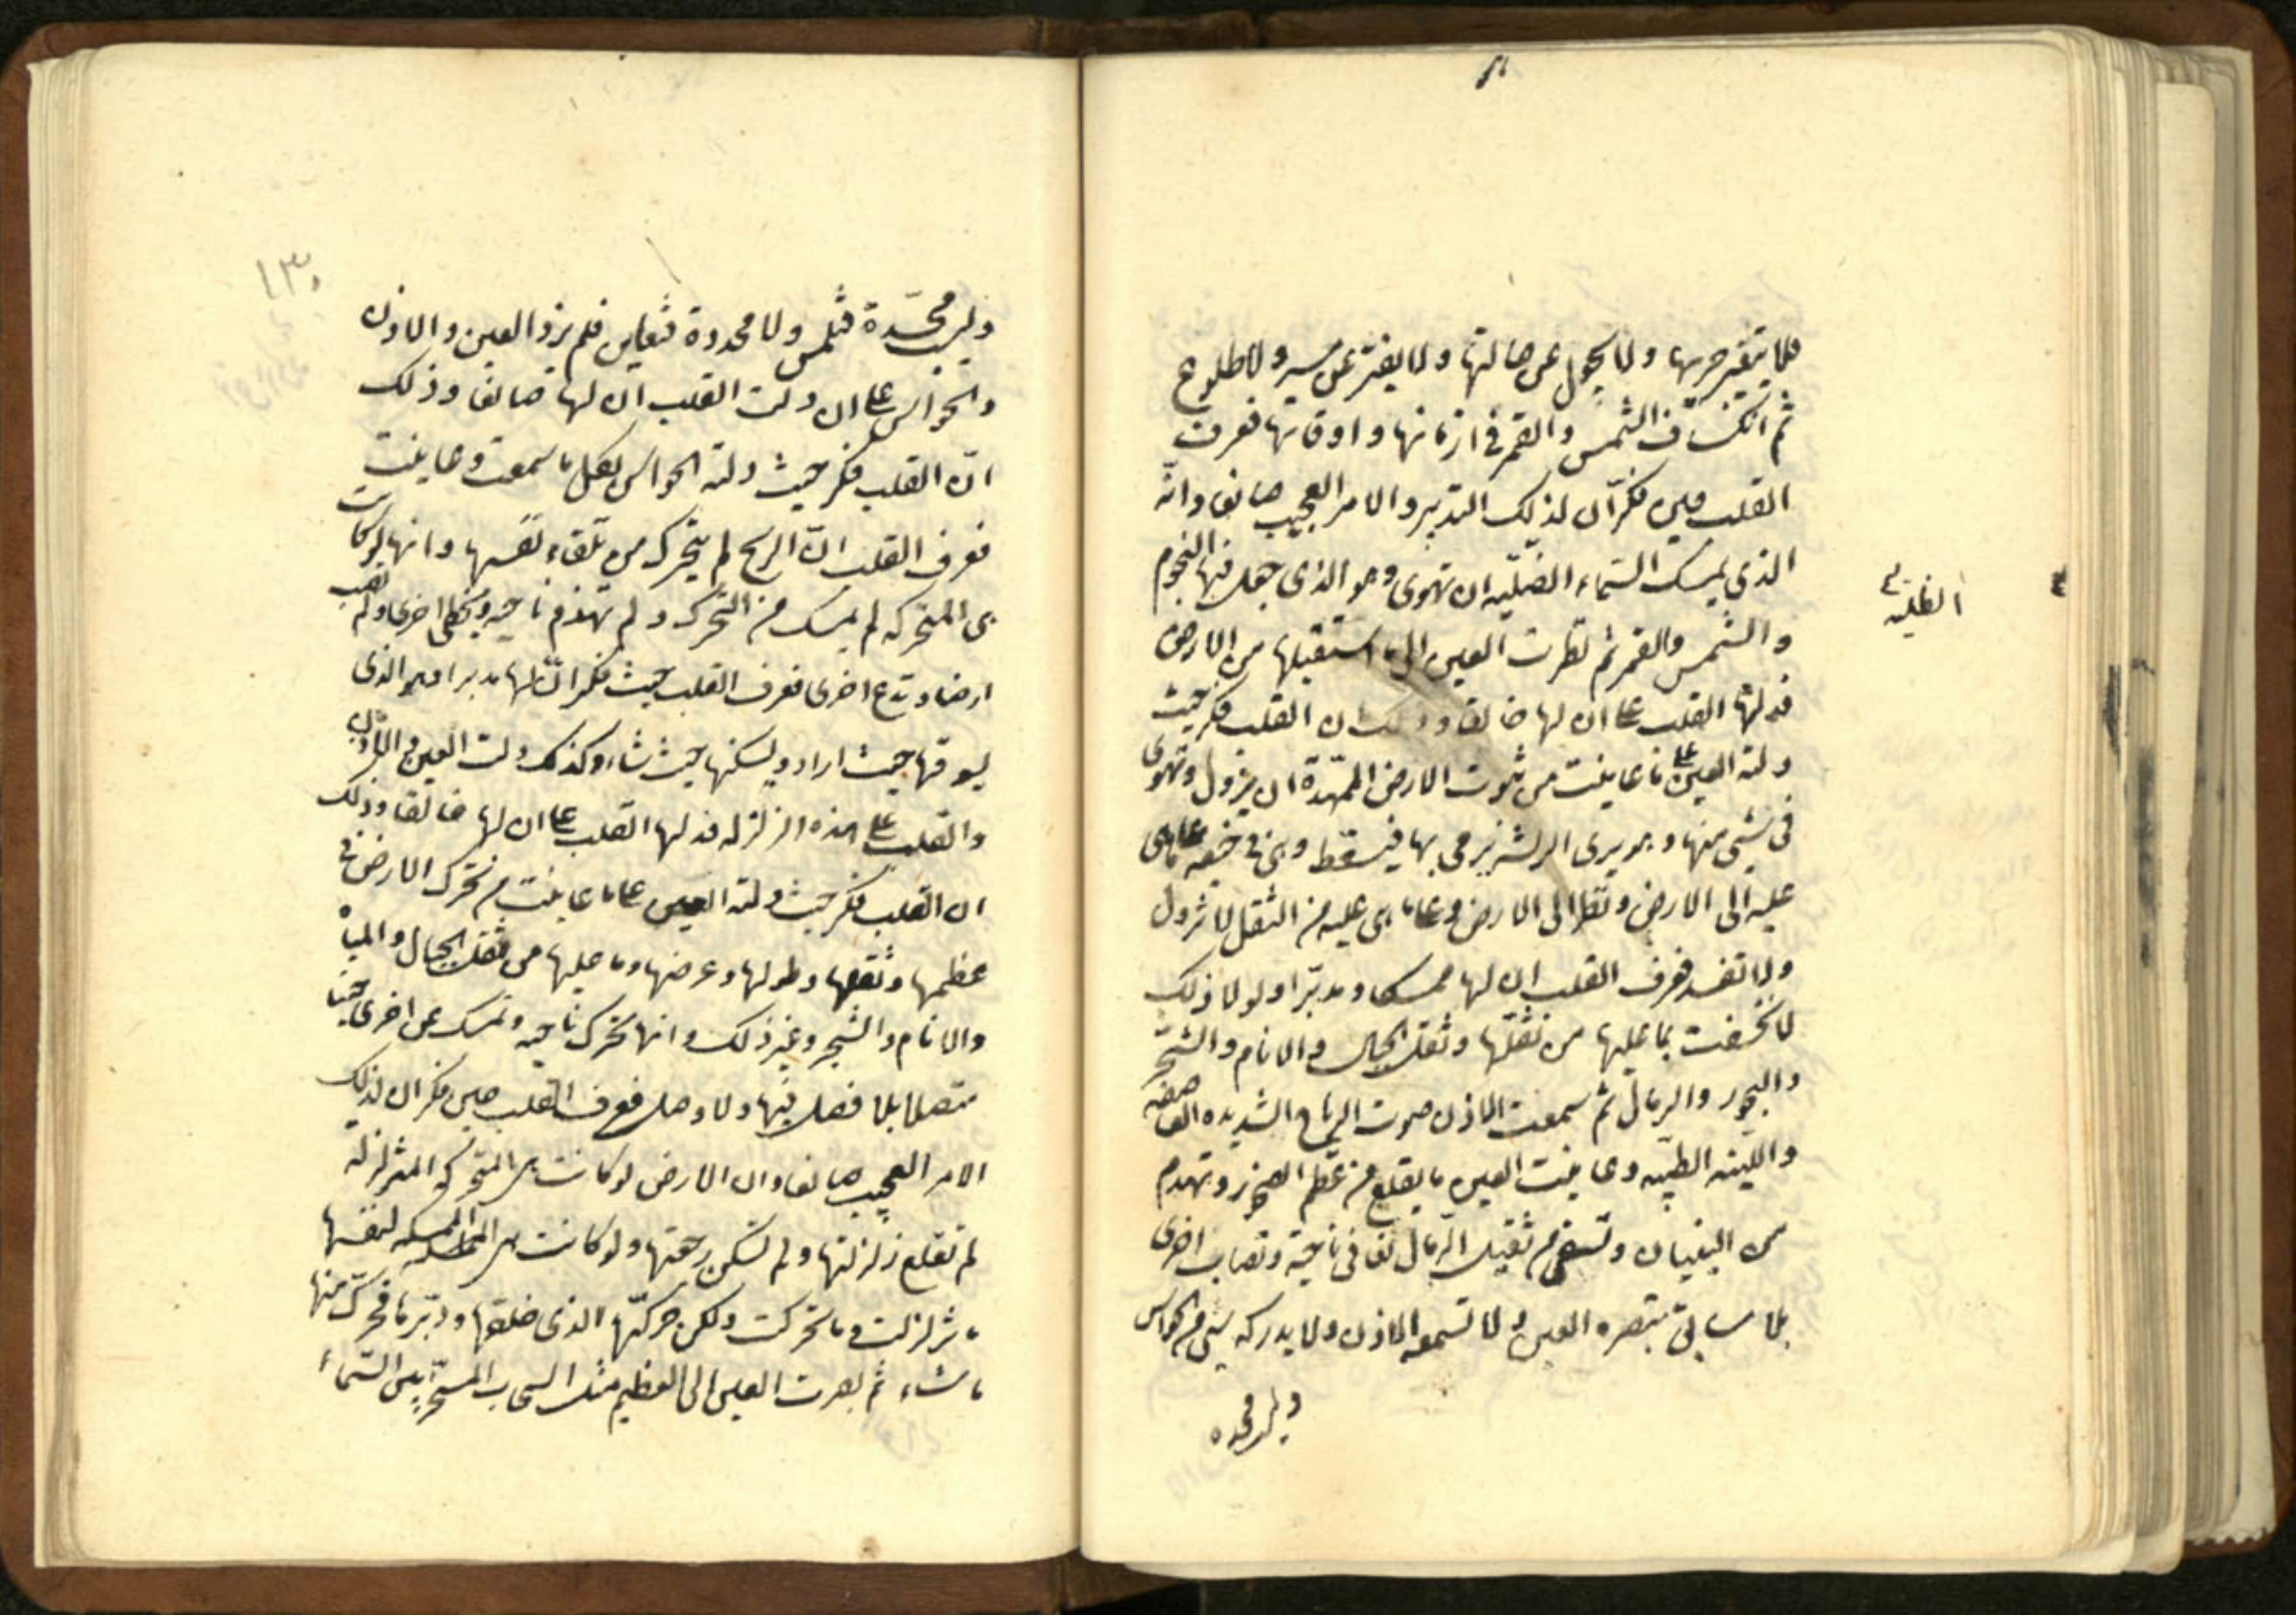 فلا يتغير حرها ولا يحول عن حالتها ولا يفتر عن سير ولا طلوع
ثم انكساف الشمس والقمر في ازمانها واوقاتها فعرف
القلب حين فكر ان لذلك التدبير والامر العجيب صانعا وانه
الذى يمسك السماء ان تهوى وهو الذى جعل فيها النجوم
والشمس والقمر ثم نظرت العين الى ما استقبلها من الارض
فدلتها القلب على ان لها خالقا وذلك ان القلب فكر حيث
دلته العين على ما عاينت من ثبوت الارض الممهدة ان يزول وتهوى
فى شىء منها وهو يرى الريشة يرمى بها فيسقط وهى فى خفة ما هى
عليه الى الارض ونظر الى الارض وعلى ما هى عليه من الثقل لا تزول
ولا تنفد فعرف القلب ان لها ممسكا ومدبرا ولولا ذلك
لانخسفت بما عليها من ثقلها وثقل الجبال والانام والشجر
والبحور والرمال ثم سمعت الاذن صوت الرياح الشديدة العاصفه
واللينه الطيبه وعاينت العين ما يقلع من عظم الصخر وتهدم
من البنيان وتسفى من ثقيل الرمال تفا فى ناحية وتصاب اخرى
بلا سايق تبصره العين ولا تسمعه الاذن ولا يدركه شىء من الحواس
وليس مجسده
الظلة
١٣
وليس مجسدة فتلمس ولا محدودة فتعاين فلم يزد العين والاذن
والحواس على ان دلت القلب ان لها صانعا وذلك
ان القلب فكر حيث دلته الحواس بكل ما سمعت وعاينت
فعرف القلب ان الريح لم يتحرك من تلقاء نفسها وانها لو كانت
هى المتحركه لم يمسك من التحرك ولم تهدم ناحيه ويخطى اخرى ولم تصب
ارضا وتدع اخرى فعرف القلب حيث فكر ان لها مدبرا وهو الذى
يسوقها حيث اراد ويسكنها حيث شاء وكذلك دلت العين والاذن
والقلب على هذه الزلزله فدلها القلب على ان لها خالقا وذلك
ان القلب فكر حيث دلته العين على ما عاينت من تحرك الارض فى
عظمها وثقلها وطولها وعرضها وما عليها من ثقل الجبال والمياه
والانام والشجر وغير ذلك وانها تتحرك ناحيه وتمسك عن اخرى
متصلا بلا فصل فيها ولا وصل فعرف القلب حين فكر ان لذلك
الامر العجيب صانعا وان الارض لو كانت هى المتحركة المتزلزلة
لم تقلع زلزلتها ولم تسكن رجفتها ولو كانت هى الممسكه لنفسها
ما تزلزلت وما تحركت ولكن حركها الذى خلقها ودبرها فحرك منها
ما شاء ثم بصرت العين الى العظيم مثل السحاب المسخر بين السماء